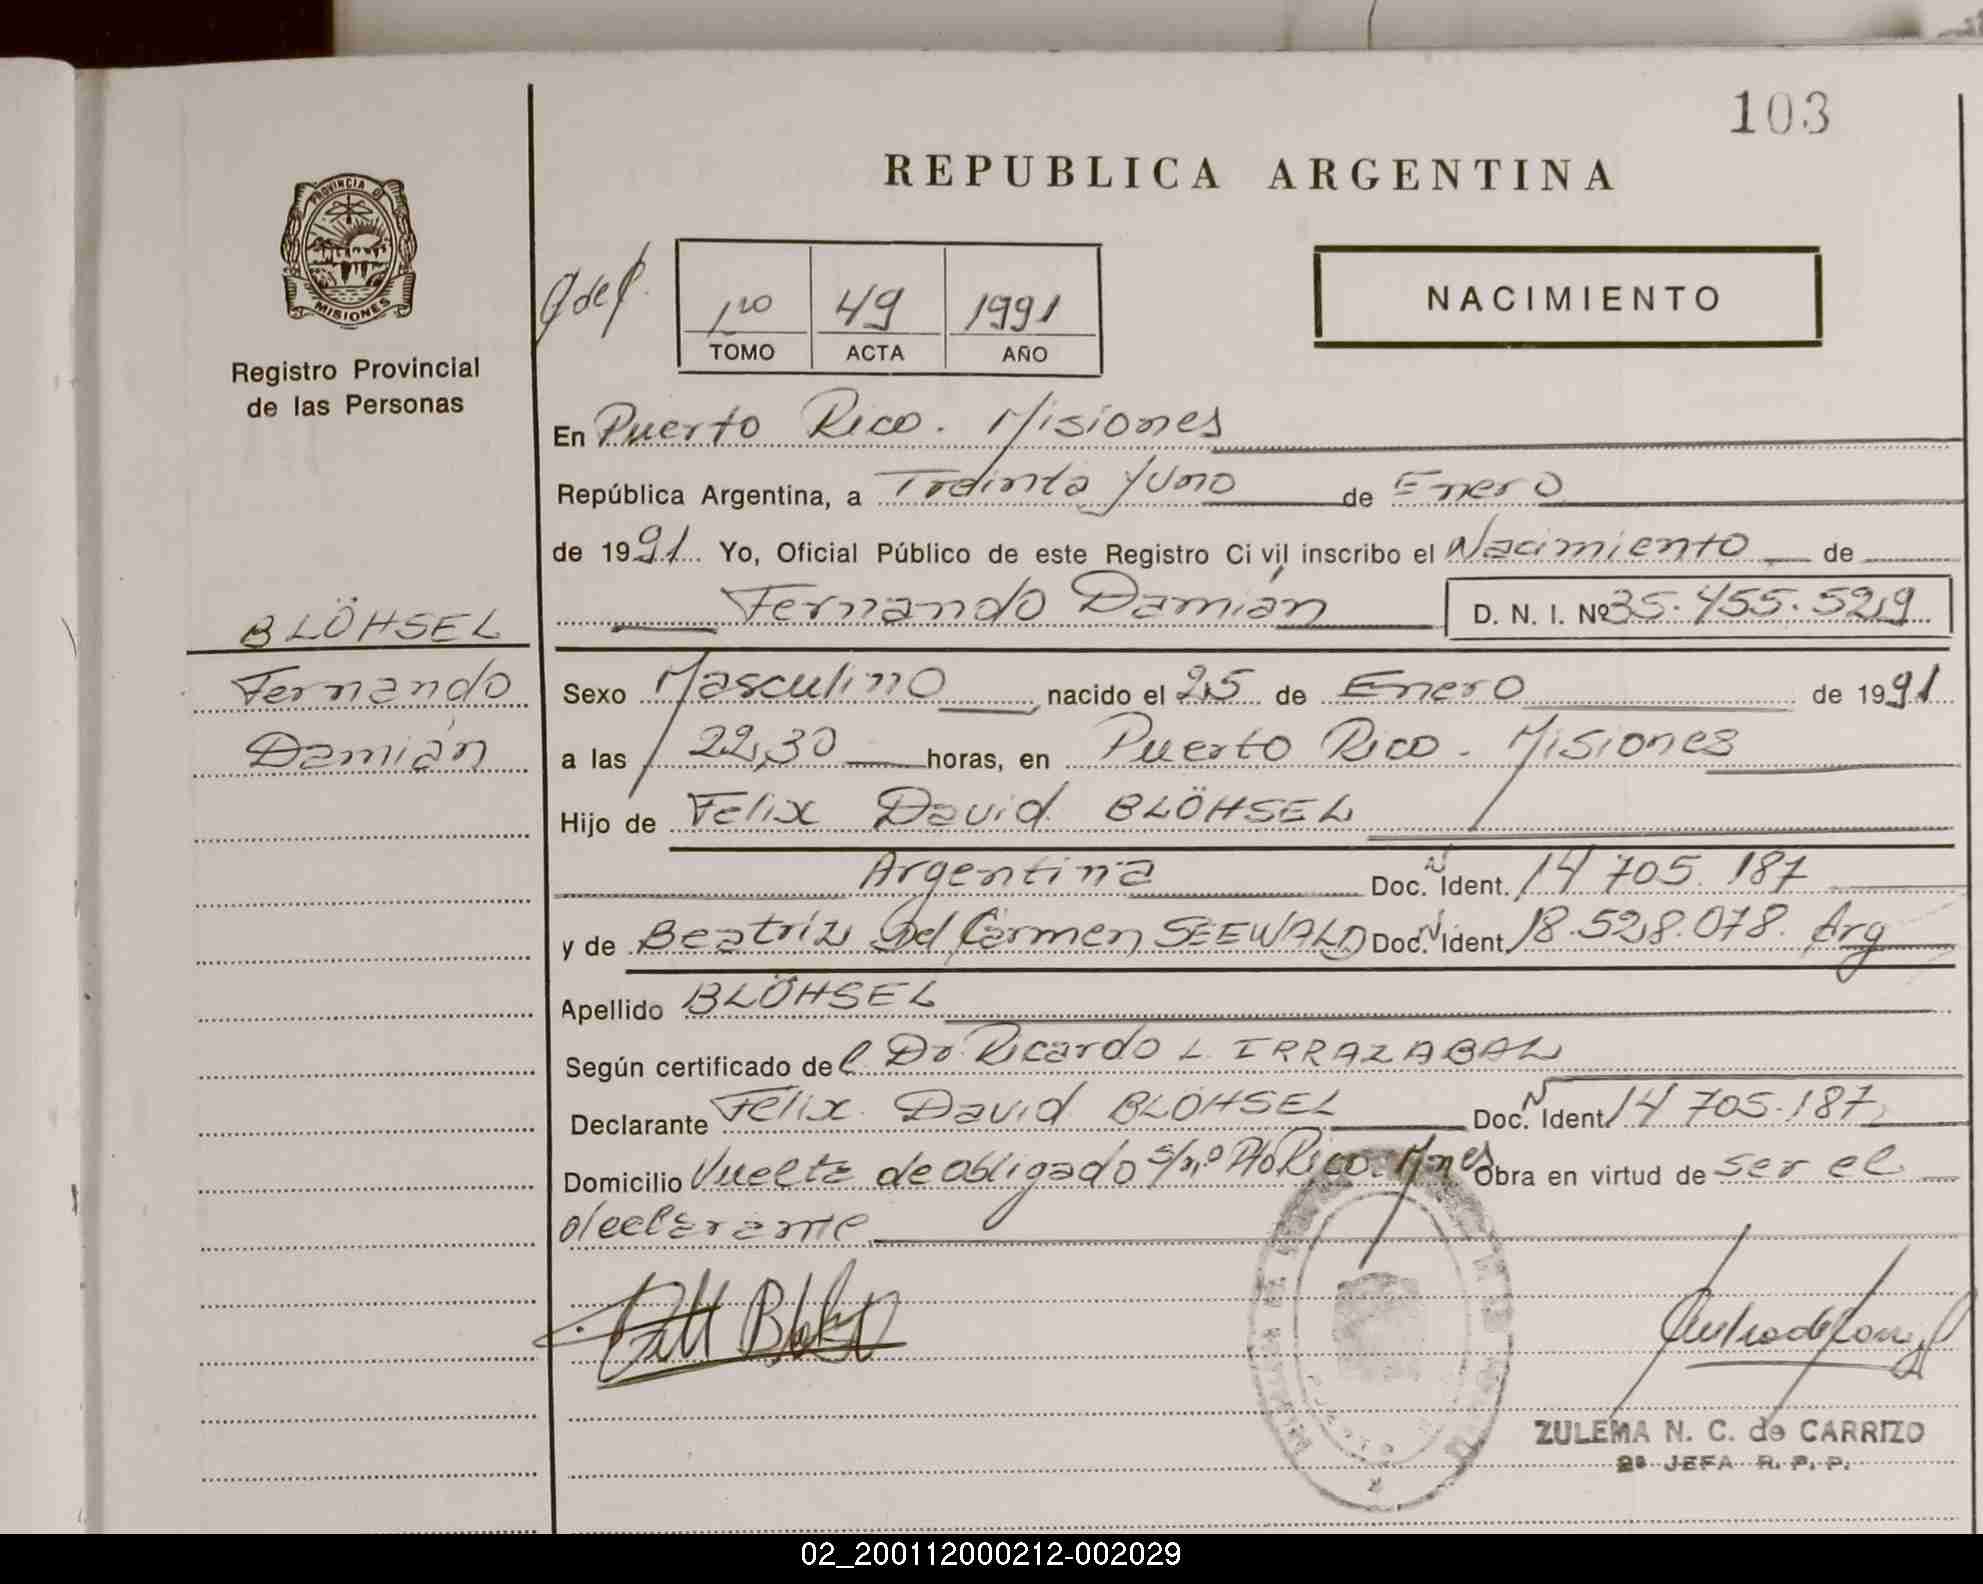 103
REPUBLICA ARGENTINA
PROVINCIA DE
MISIONES
1ro 49 1991
TOMO ACTA AÑO
NACIMIENTO
Registro Provincial
de las Personas
En Puerto Rico. Misiones
República Argentina, a Treinta y uno de Enero
de 1991. Yo, Oficial Público de este Registro Ci vil inscribo el Nacimiento de
Fernando Damián D. N. I. Nº 35.455.529
BLÖHSEL
Fernando
Damián
Sexo Masculino nacido el 25 de Enero de 1991
a las 22,30 horas, en Puerto Rico. Misiones
Hijo de Felix David BLÖHSEL
Argentina Doc. N Ident. 14 705.187
y de Beatriz Del Carmen SEEWALD Doc. N Ident. 18.528.078. Arg
Apellido BLÖHSEL
Según certificado del Dr. Ricardo L. IRRAZABAL
Declarante Felix David BLÖHSEL Doc. N Ident. 14 705.187
Domicilio Vuelta de obligado s/nº Pto Rico. Mnes Obra en virtud de ser el
declarante
ZULEMA N. C. de CARRIZO
2ª JEFA R. P. P.
02_200112000212-002029